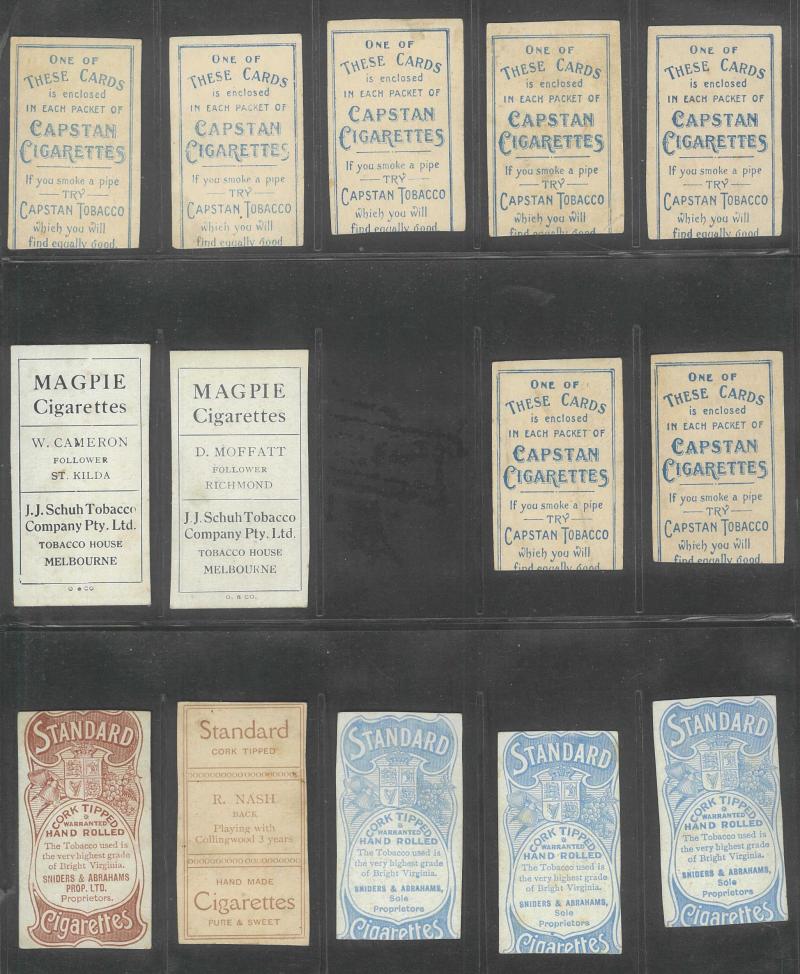 ONE OF
THESE CARDS
is enclosed
IN EACH PACKET OF
CAPSTAN
CIGARETTES
If you smoke a pipe
TRY
CAPSTAN TOBACCO
which you will
find equally good.
ONE OF
THESE CARDS
is enclosed
IN EACH PACKET OF
CAPSTAN
CIGARETTES
If you smoke a pipe
TRY
CAPSTAN TOBACCO
which you will
find equally good.
ONE OF
THESE CARDS
is enclosed
IN EACH PACKET OF
CAPSTAN
CIGARETTES
If you smoke a pipe
TRY
CAPSTAN TOBACCO
which you will
find equally good.
ONE OF
THESE CARDS
is enclosed
IN EACH PACKET OF
CAPSTAN
CIGARETTES
If you smoke a pipe
TRY
CAPSTAN TOBACCO
which you will
find equally good.
ONE OF
THESE CARDS
is enclosed
IN EACH PACKET OF
CAPSTAN
CIGARETTES
If you smoke a pipe
TRY
CAPSTAN TOBACCO
which you will
find equally good.
MAGPIE
Cigarettes
W. CAMERON
FOLLOWER
ST. KILDA
J.J. Schuh Tobacco
Company Pty. Ltd.
TOBACCO HOUSE
MELBOURNE
O & CO
MAGPIE
Cigarettes
D. MOFFATT
FOLLOWER
RICHMOND
J.J. Schuh Tobacco
Company Pty. Ltd.
TOBACCO HOUSE
MELBOURNE
O. & CO.
ONE OF
THESE CARDS
is enclosed
IN EACH PACKET OF
CAPSTAN
CIGARETTES
If you smoke a pipe
TRY
CAPSTAN TOBACCO
which you will
find equally good.
ONE OF
THESE CARDS
is enclosed
IN EACH PACKET OF
CAPSTAN
CIGARETTES
If you smoke a pipe
TRY
CAPSTAN TOBACCO
which you will
find equally good.
STANDARD
CORK TIPPED
&
WARRANTED
HAND ROLLED
The Tobacco used is
the very highest grade
of Bright Virginia.
SNIDERS & ABRAHAMS
PROP. LTD.
Proprietors.
Cigarettes
Standard
CORK TIPPED
R. NASH
BACK
Playing with
Collingwood 3 years
HAND MADE
Cigarettes
PURE & SWEET
STANDARD
CORK TIPPED
&
WARRANTED
HAND ROLLED
The Tobacco used is
the very highest grade
of Bright Virginia.
SNIDERS & ABRAHAMS,
Sole
Proprietors
Cigarettes
STANDARD
CORK TIPPED
&
WARRANTED
HAND ROLLED
The Tobacco used is
the very highest grade
of Bright Virginia.
SNIDERS & ABRAHAMS,
Sole
Proprietors
Cigarettes
STANDARD
CORK TIPPED
&
WARRANTED
HAND ROLLED
The Tobacco used is
the very highest grade
of Bright Virginia.
SNIDERS & ABRAHAMS,
Sole
Proprietors
Cigarettes